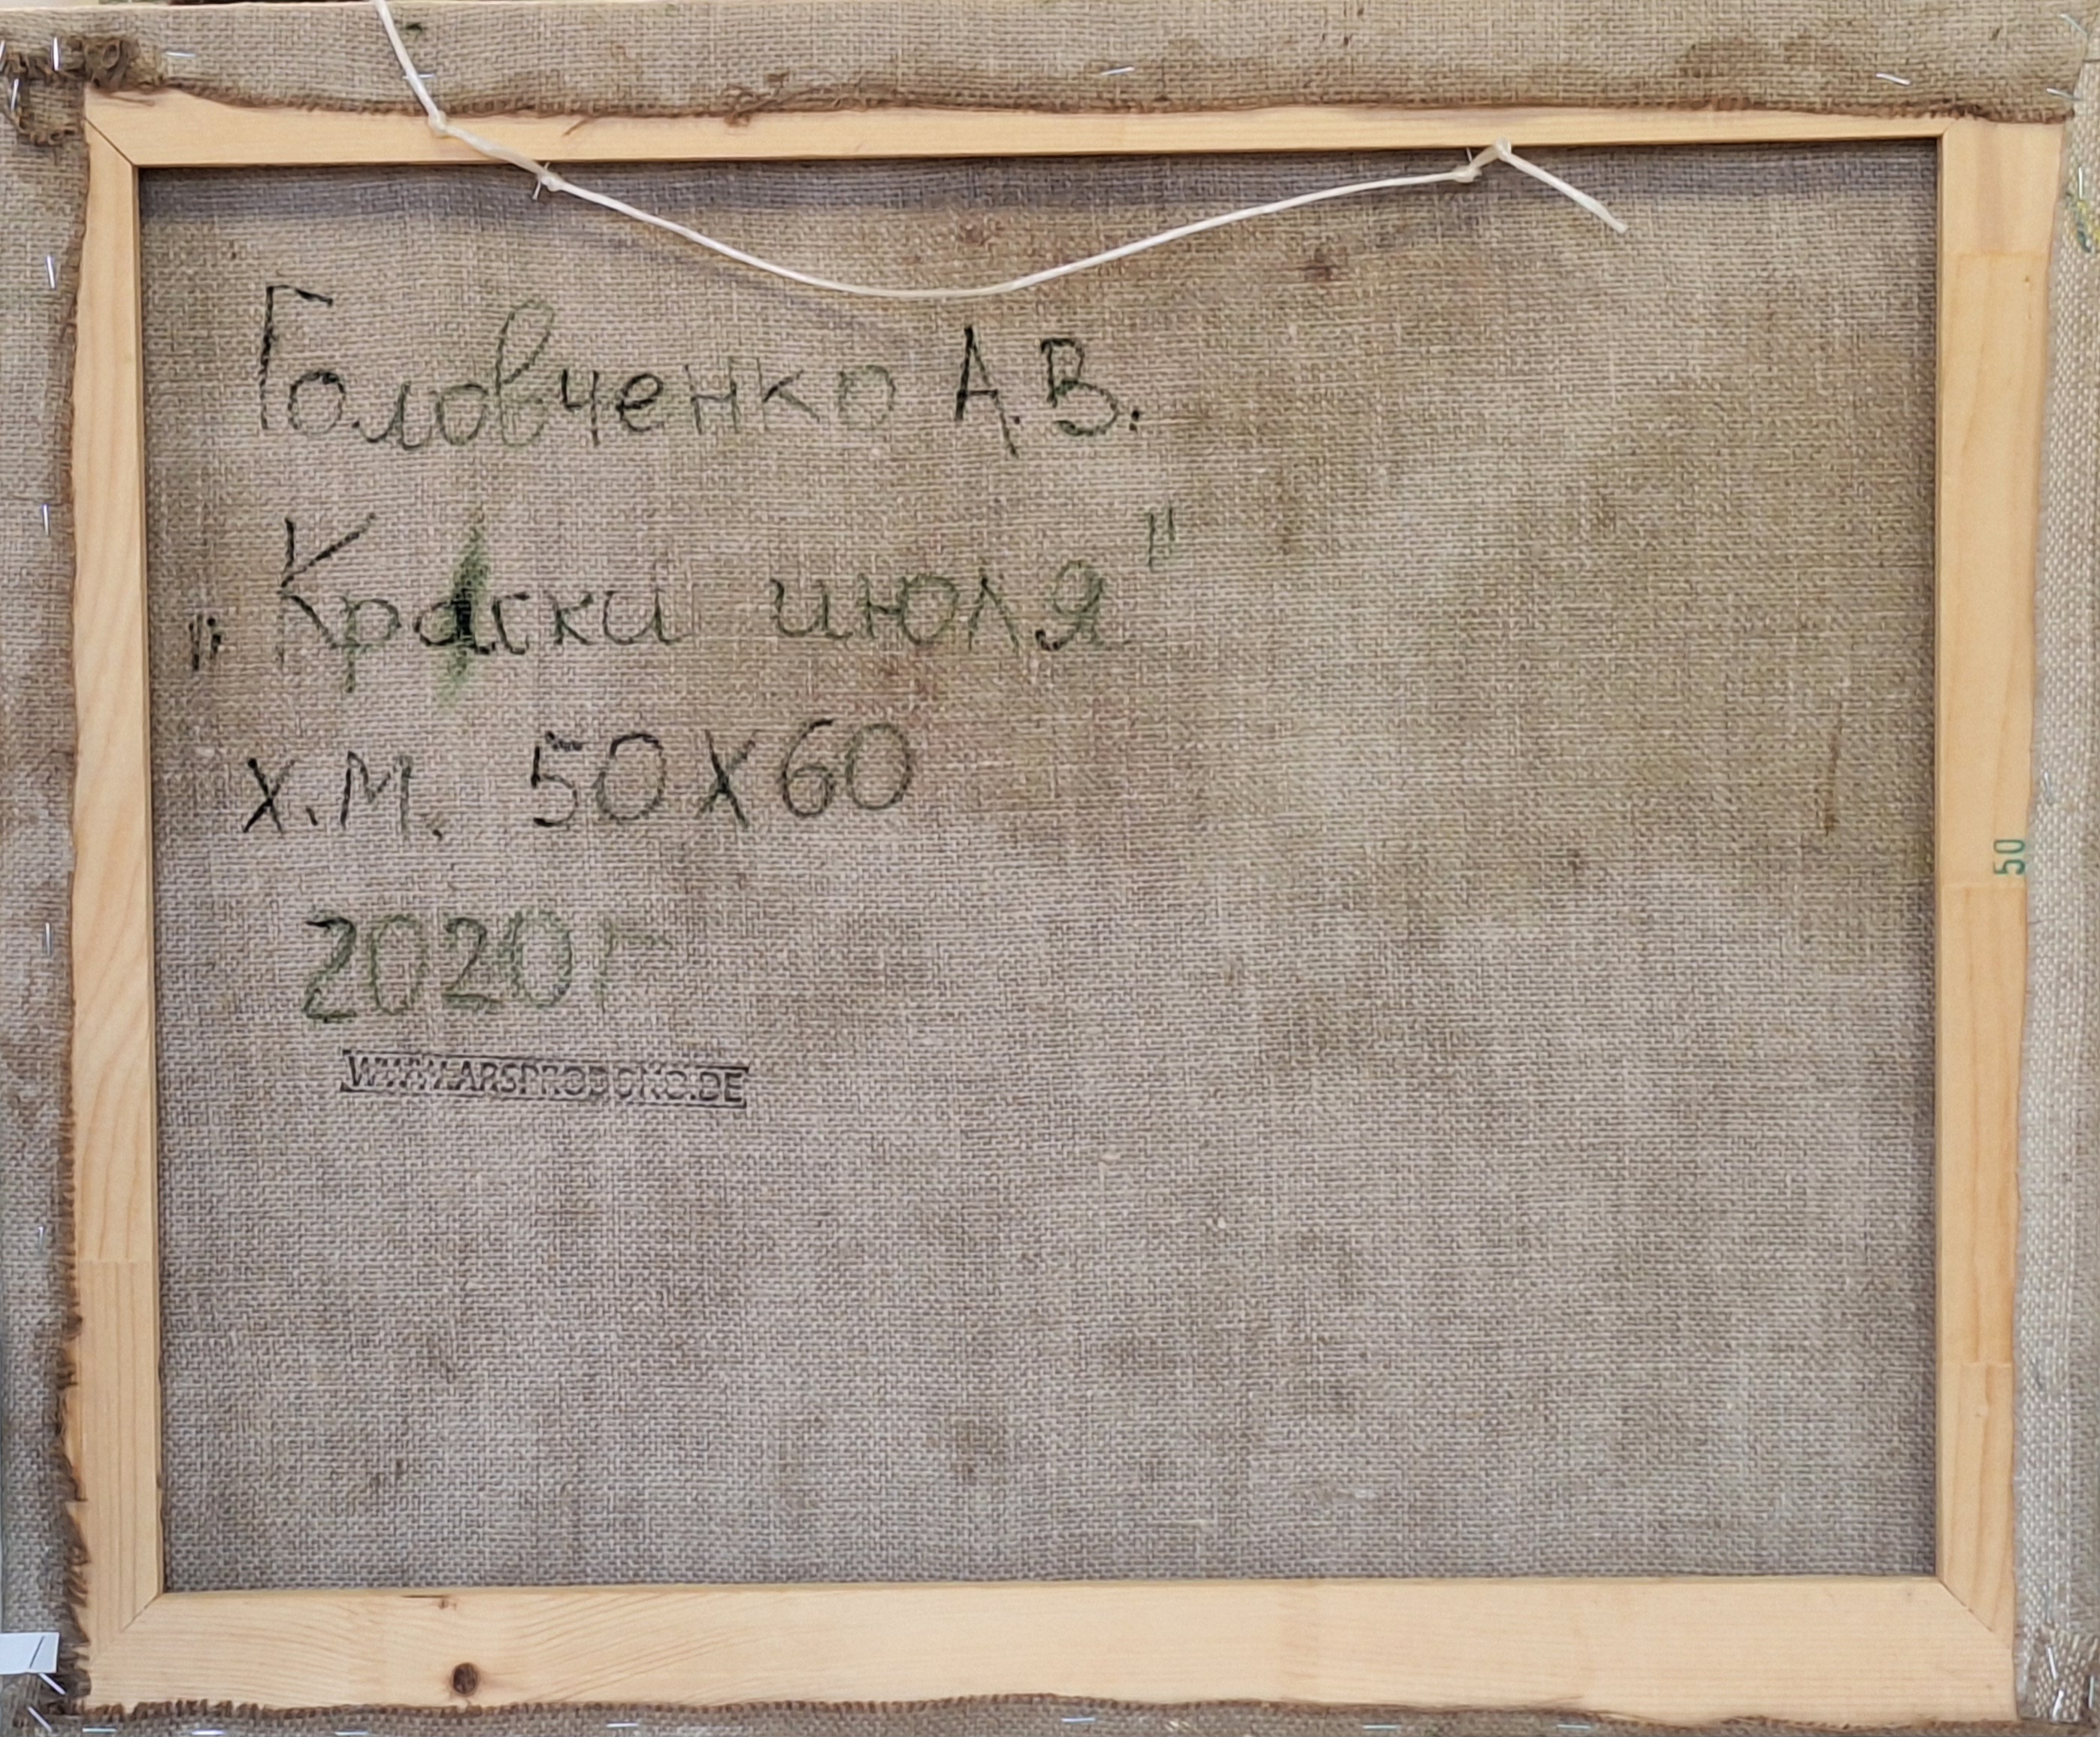 Головченко А.В.
„Краски июля"
х.м. 50х60
2020г
WWW.ARSPRODONO.DE
50